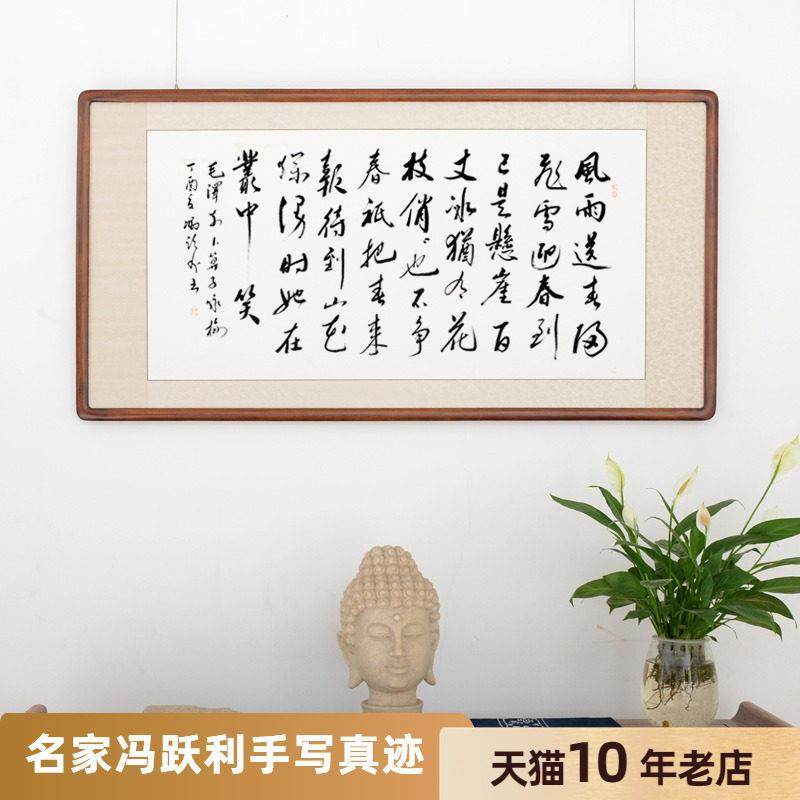 風雨送春歸
飛雪迎春到
已是懸崖百
丈冰猶有花
枝俏〻也不争
春祇把春來
報待到山花
爛漫時她在
叢中笑
毛澤東卜算子詠梅
丁酉 馮躍利書
名家冯跃利手写真迹
天猫10年老店